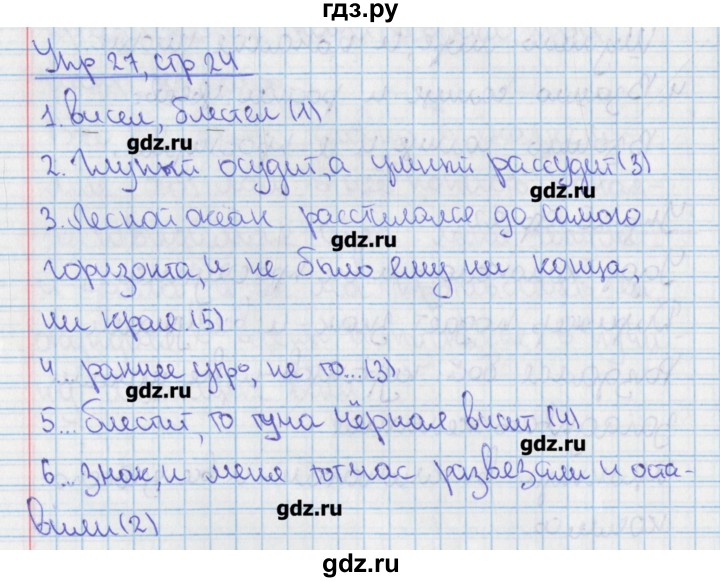 гдз.ру
Упр 27, стр 24
1. висел, блестел (1)
gdz.ru
2. Глупый осудит, а умный рассудит (3)
gdz.ru
3. Лесной океан расстилался до самого
gdz.ru
горизонта, и не было ему ни конца,
ни края. (5)
4... раннее утро, не то... (3)
gdz.ru
5... блестит, то туча чёрная висит (4)
gdz.ru
6... знак, и меня тотчас развязали и оста-
gdz.ru
вили (2)
gdz.ru